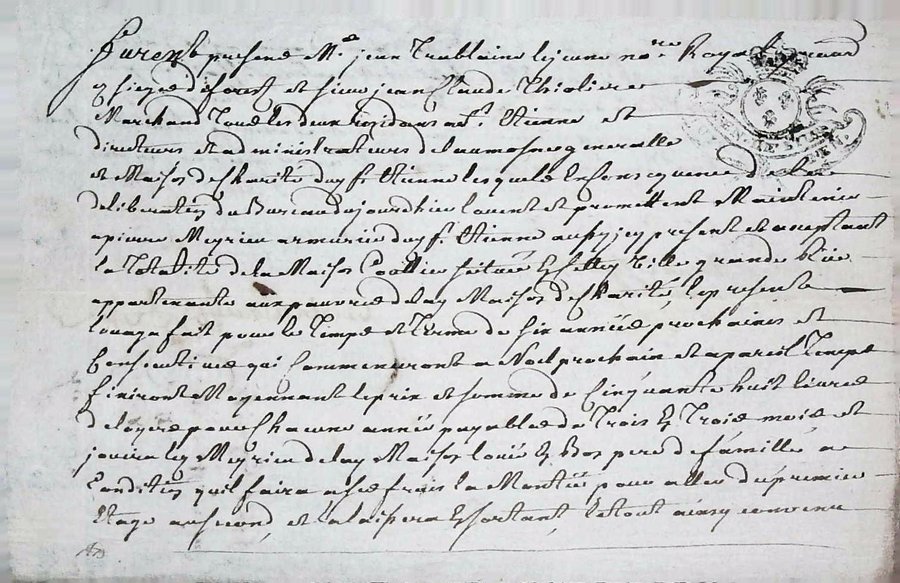 Furent present Me. jean Trablaine lejeune nore. Royal
et sieur jean Claude Thioliere
Marchand Tous les deux residans a St. Etienne et
directeurs et administrateurs de laumosne generalle
et Maison de Charité dud. St. Etienne lesquels En Consequence de la
deliberation du Bureau dujourdhier louent et promettent Maintenir
a pierre Meyrieu armurier dud. St. Etienne aussy icy present et acceptant
la Totalité de la Maison situee En cette Ville grande Rüe
appartenante aux pauvres de lad. Maison de Charité le present
louage fait pour le Temps et Terme de six années prochaines et
Consecutives qui Commenceront a Noel prochain et a pareil Temps
finiront Moyennant le prix et somme de Cinquante huit livres
de loyer pour Chacune année payable de Trois En Trois mois et
jouira led. Meyrieu de lad. Maison louée En Bon pere de famille a
Condition quil faira a ses frais la Montée pour aller du premier
Etage au second, et la laissera En sortant, le tout ainsy convenu